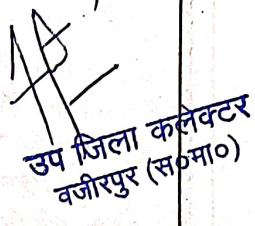 उप जिला कलेक्टर
वजीरपुर (स०मा०)